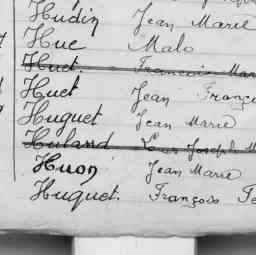 Hudin Jean Marie
Huc Malo
Huet François Mar
Huet Jean Franço
Huguet Jean Marie
Huland Louis Joseph M
Huon Jean Marie
Huguet. François